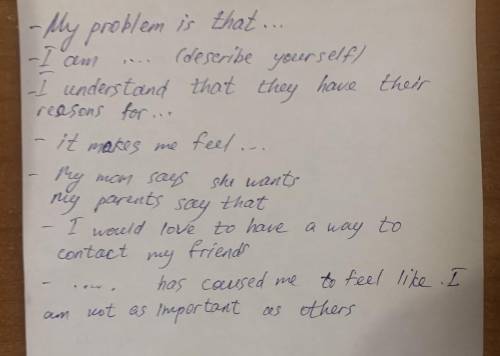 - My problem is that...
- I am .... (describe yourself)
- I understand that they have their
reasons for...
- it makes me feel...
- My mom says she wants
My parents say that
- I would love to have a way to
contact my friends
- ..... has caused me to feel like. I
am not as important as others